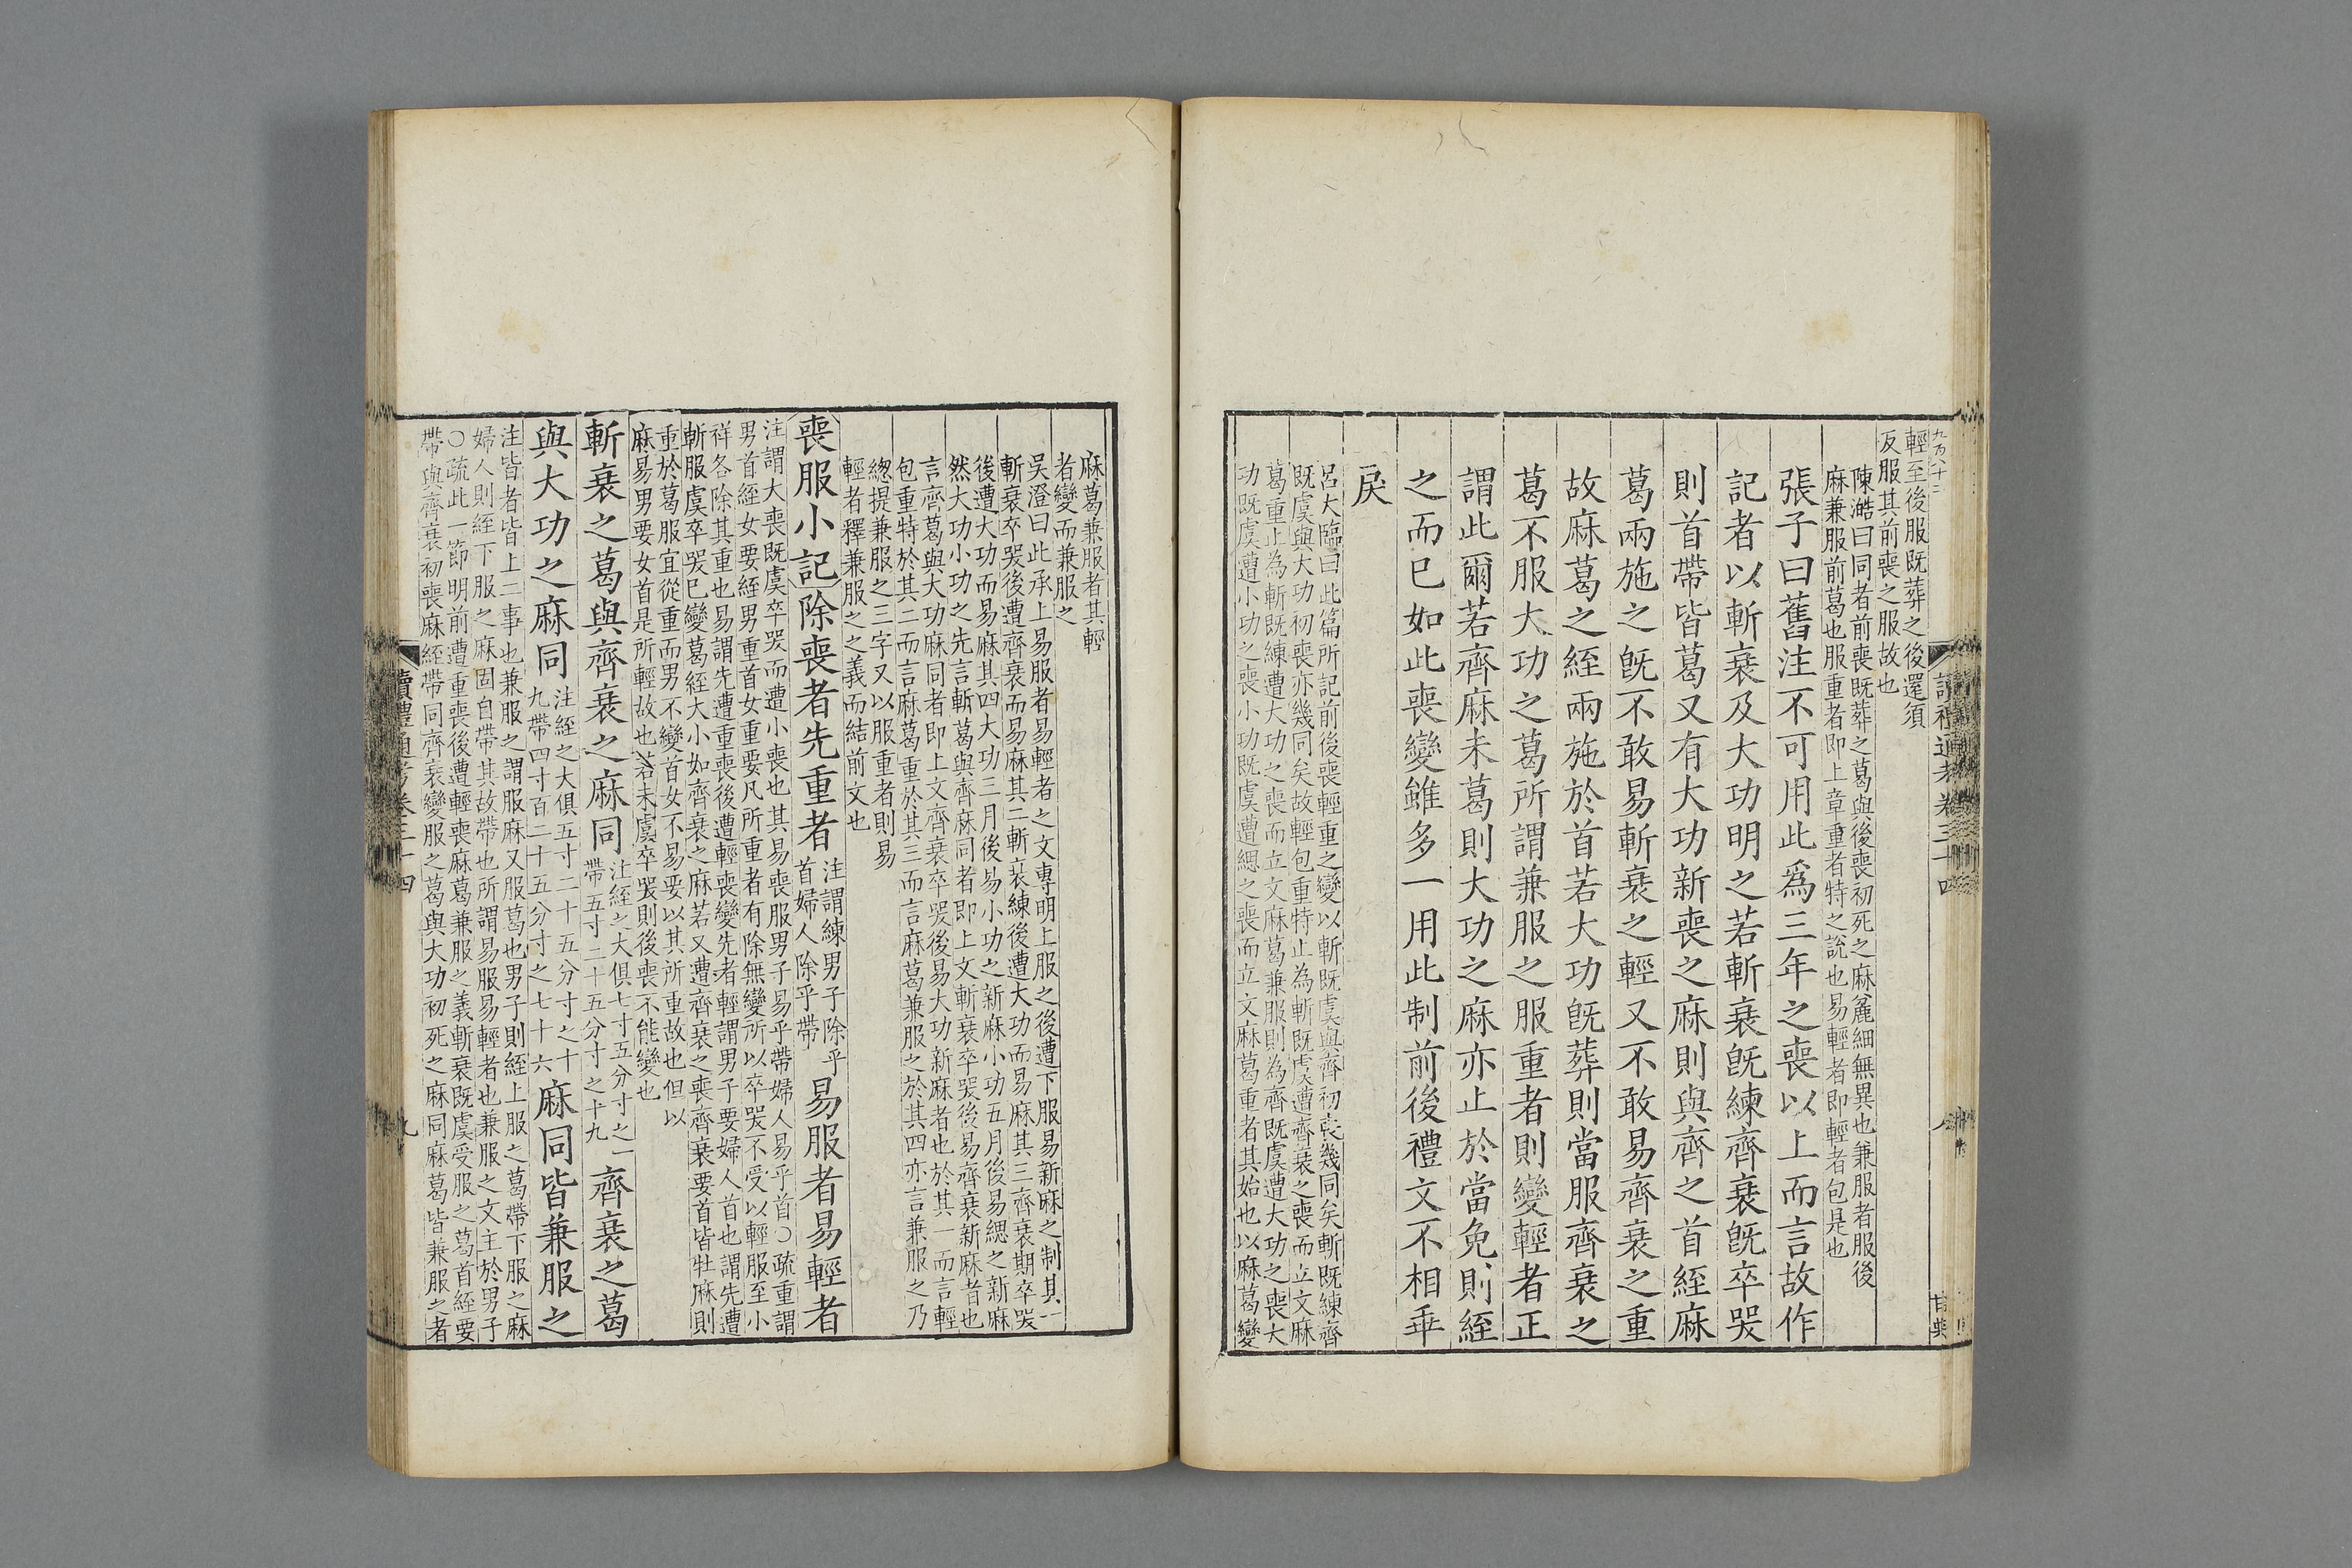 輕至後服既葬之後還須
反服其前喪之服故也
陳澔曰同者前喪既葬之葛與後喪初死之麻麄細無異也兼服者服後
麻兼服前葛也服重者即上章重者特之說也易輕者即輕者包是也
張子曰舊注不可用此爲三年之喪以上而言故作
記者以斬衰及大功明之若斬衰旣練齊衰旣卒哭
則首帶皆葛又有大功新喪之麻則與齊之首絰麻
葛兩施之旣不敢易斬衰之輕又不敢易齊衰之重
故麻葛之絰兩施於首若大功旣葬則當服齊衰之
葛不服大功之葛所謂兼服之服重者則變輕者正
謂此爾若齊麻未葛則大功之麻亦止於當免則絰
之而已如此喪變雖多一用此制前後禮文不相乖
戾
呂大臨曰此篇所記前後喪輕重之變以斬既虞與齊初喪幾同矣斬既練齊
既虞與大功初喪亦幾同矣故輕包重特止為斬既虞遭齊衰之喪而立文麻
葛重止為斬既練遭大功之喪而立文麻葛兼服則為齊既虞遭大功之喪大
功既虞遭小功之喪小功既虞遭緦之喪而立文麻葛重者其始也以麻葛變
讀禮通考卷三十四
麻葛兼服者其輕
者變而兼服之
吳澄曰此承上易服者易輕者之文專明上服之後遭下服易新麻之制其一
斬衰卒哭後遭齊衰而易麻其二斬衰練後遭大功而易麻其三齊衰期卒哭
後遭大功而易麻其四大功三月後易小功之新麻小功五月後易緦之新麻
然大功小功之先言斬葛與齊麻同者即上文斬衰卒哭後易齊衰新麻者也
言齊葛與大功麻同者即上文齊衰卒哭後易大功新麻者也於其一而言輕
包重特於其二而言麻葛重於其三而言麻葛兼服之於其四亦言兼服之乃
緦提兼服之三字又以服重者則易
輕者釋兼服之之義而結前文也
喪服小記除喪者先重者注謂練男子除乎首婦人除乎帶易服者易輕者
注謂大喪既虞卒哭而遭小喪也其易喪服男子易乎帶婦人易乎首○疏重謂
男首絰女要絰男重首女重要凡所重者有除無變所以卒哭不受以輕服至小
祥各除其重也易謂先遭重喪後遭輕喪變先者輕謂男子要婦人首也謂先遭
斬服虞卒哭已變葛絰大小如齊衰之麻若又遭齊衰之喪齊衰要首皆牡麻則
重於葛服宜從重而男不變首女不易要以其所重故也但以
麻易男要女首是所輕故也若未虞卒哭則後喪不能變也
斬衰之葛與齊衰之麻同注絰之大俱七寸五分寸之一帶五寸二十五分寸之十九齊衰之葛
與大功之麻同注絰之大俱五寸二十五分寸之十九帶四寸百二十五分寸之七十六麻同皆兼服之
注皆者皆上二事也兼服之謂服麻又服葛也男子則絰上服之葛帶下服之麻
婦人則絰下服之麻固自帶其故帶也所謂易服易輕者也兼服之文主於男子
○疏此一節明前遭重喪後遭輕喪麻葛兼服之義斬衰既虞受服之葛首絰要
帶與齊衰初喪麻絰帶同齊衰變服之葛與大功初死之麻同麻葛皆兼服之者
讀禮通考卷三十四
九